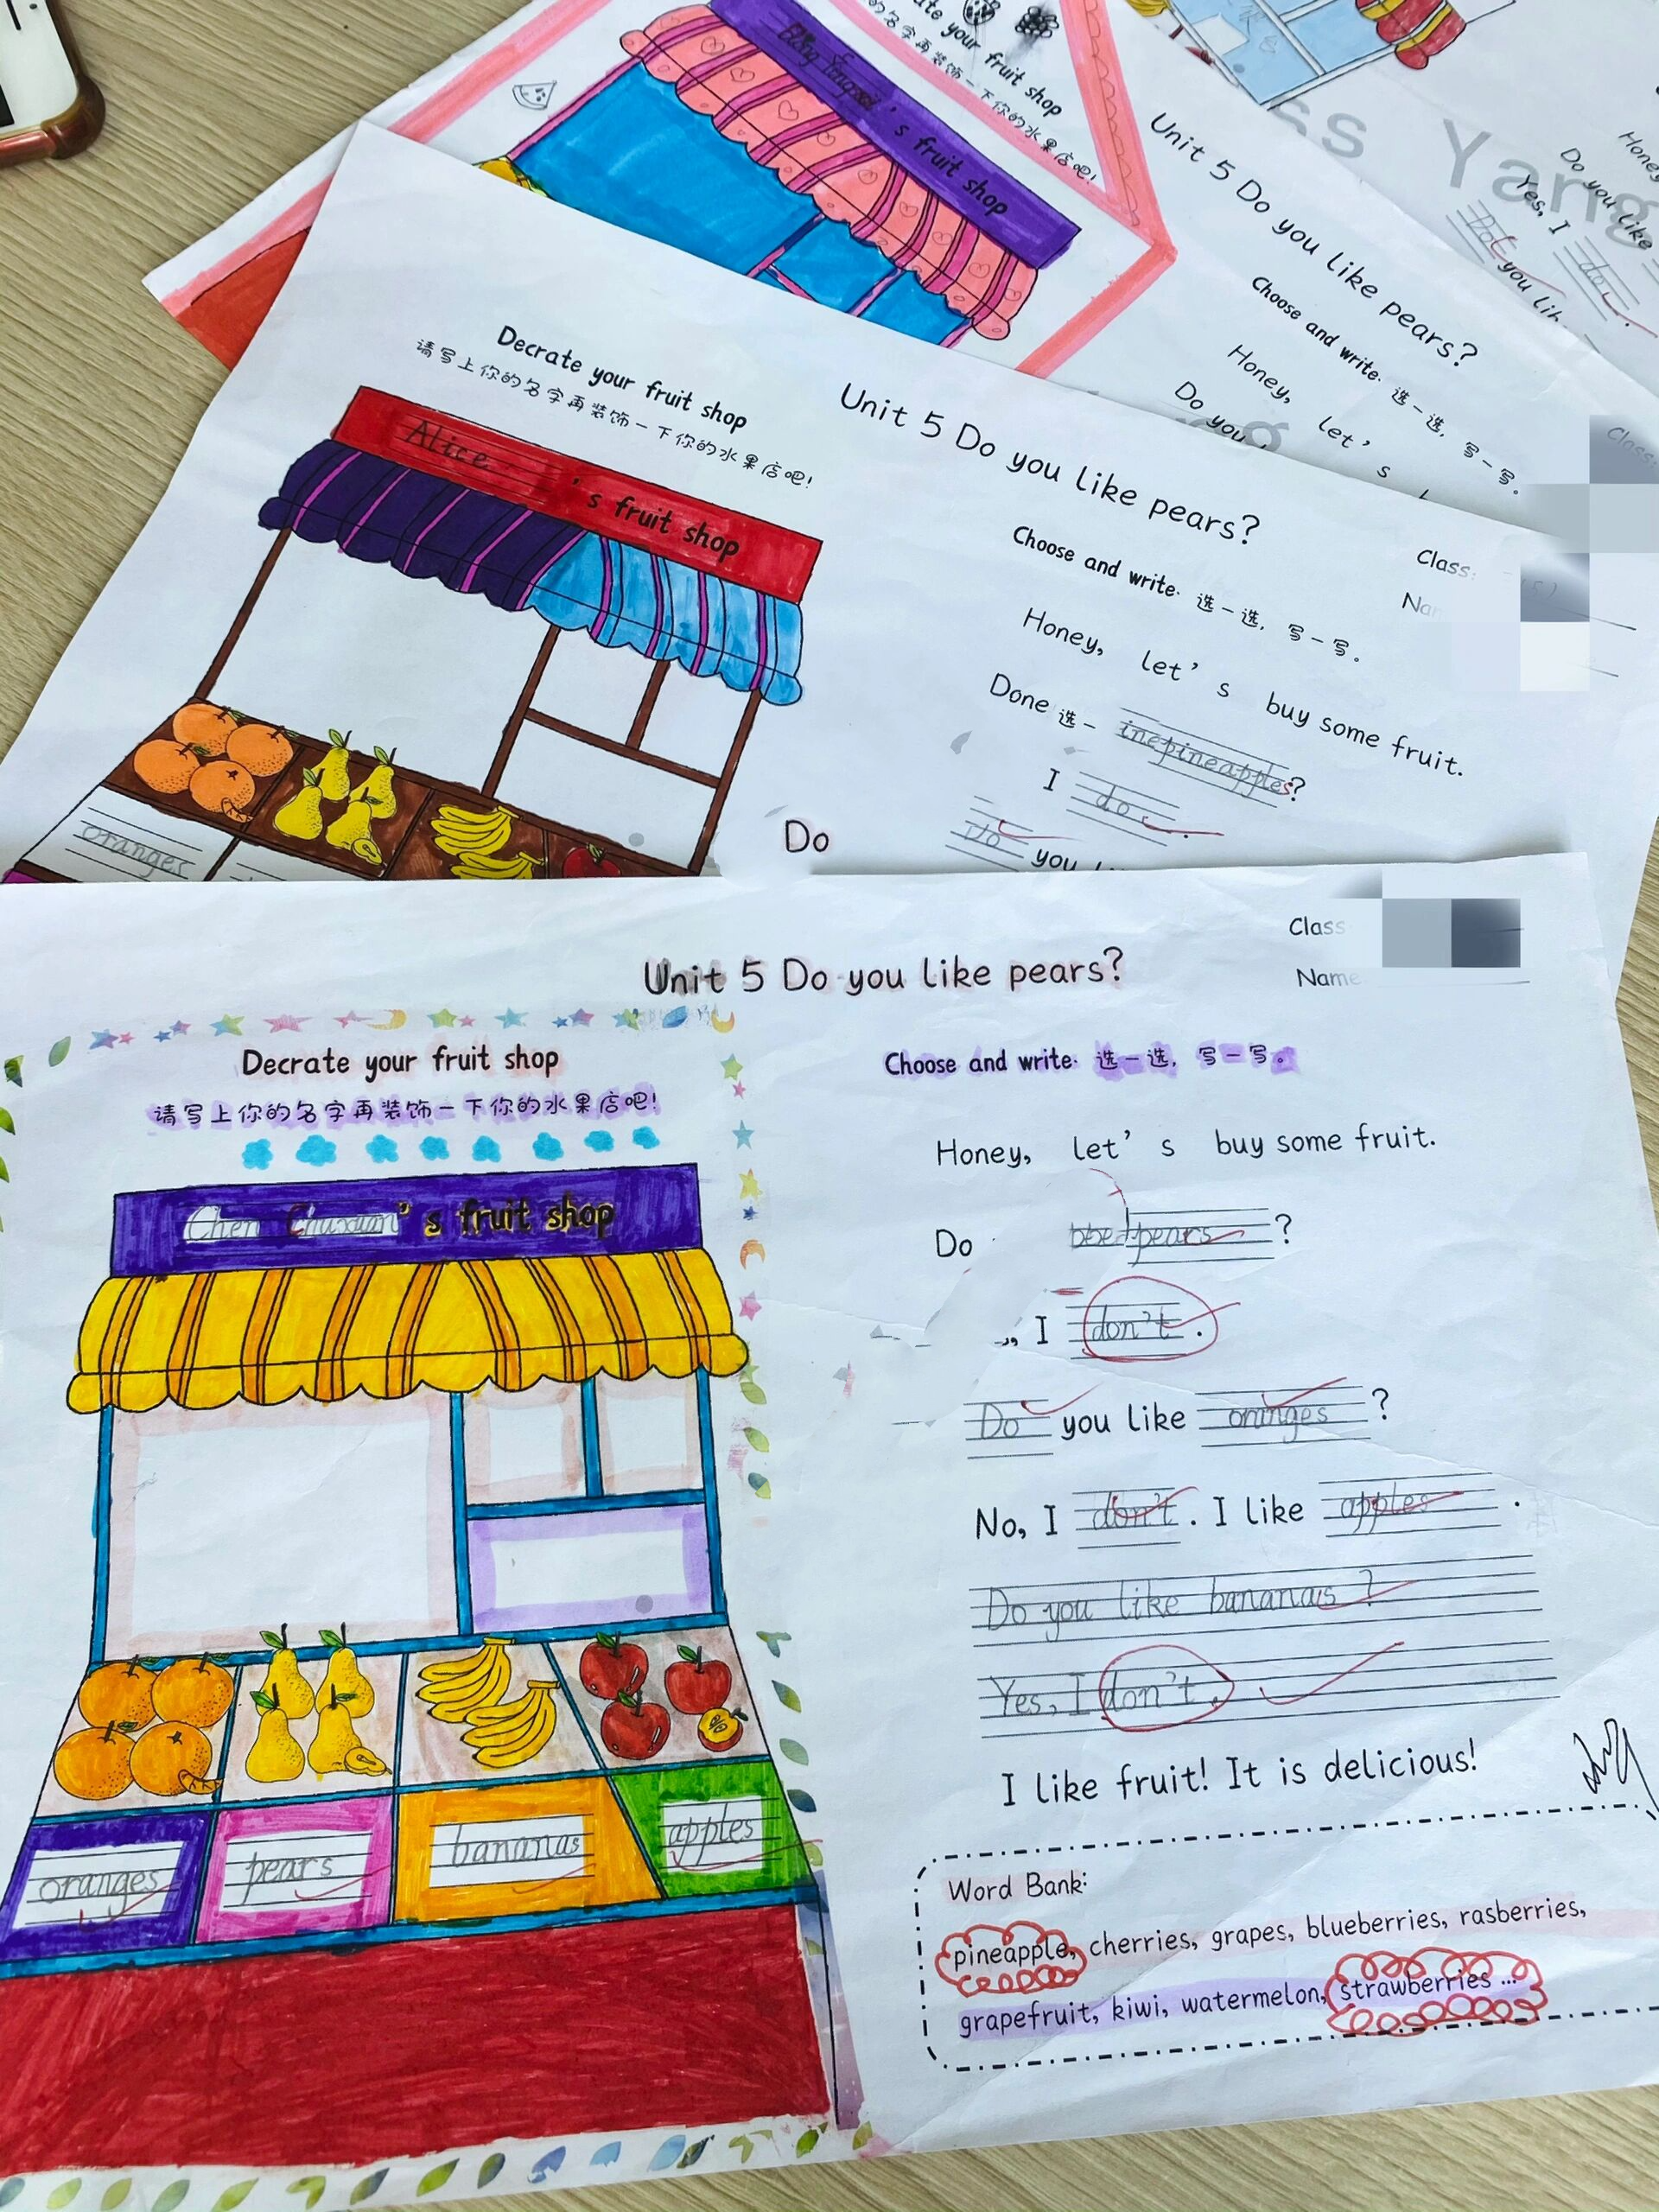 ate your fruit shop
的名字再装饰一下你的水果店吧!
's fruit shop
Unit 5 Do you like pears?
Choose and write. 选一选, 写一写。
Honey, let's
Do you
Yang
Honey
Do you like
Yes, I do.
you lik
Class
Decrate your fruit shop
请写上你的名字再装饰一下你的水果店吧!
Alice's fruit shop
oranges
Unit 5 Do you like pears?
Class:
Choose and write. 选一选, 写一写。
Honey, let's buy some fruit.
Done 选一 inepineapples?
I do.
Do
Do you
Class
Name
Unit 5 Do you like pears?
Decrate your fruit shop
请写上你的名字再装饰一下你的水果店吧!
Chen Chuxuan's fruit shop
oranges
pears
bananas
apples
Choose and write. 选一选, 写一写。
Honey, let's buy some fruit.
Do pears?
, I don't.
Do you like oranges?
No, I don't. I like apples.
Do you like bananas?
Yes, I don't.
I like fruit! It is delicious!
Word Bank:
pineapple, cherries, grapes, blueberries, rasberries,
grapefruit, kiwi, watermelon, strawberries ...